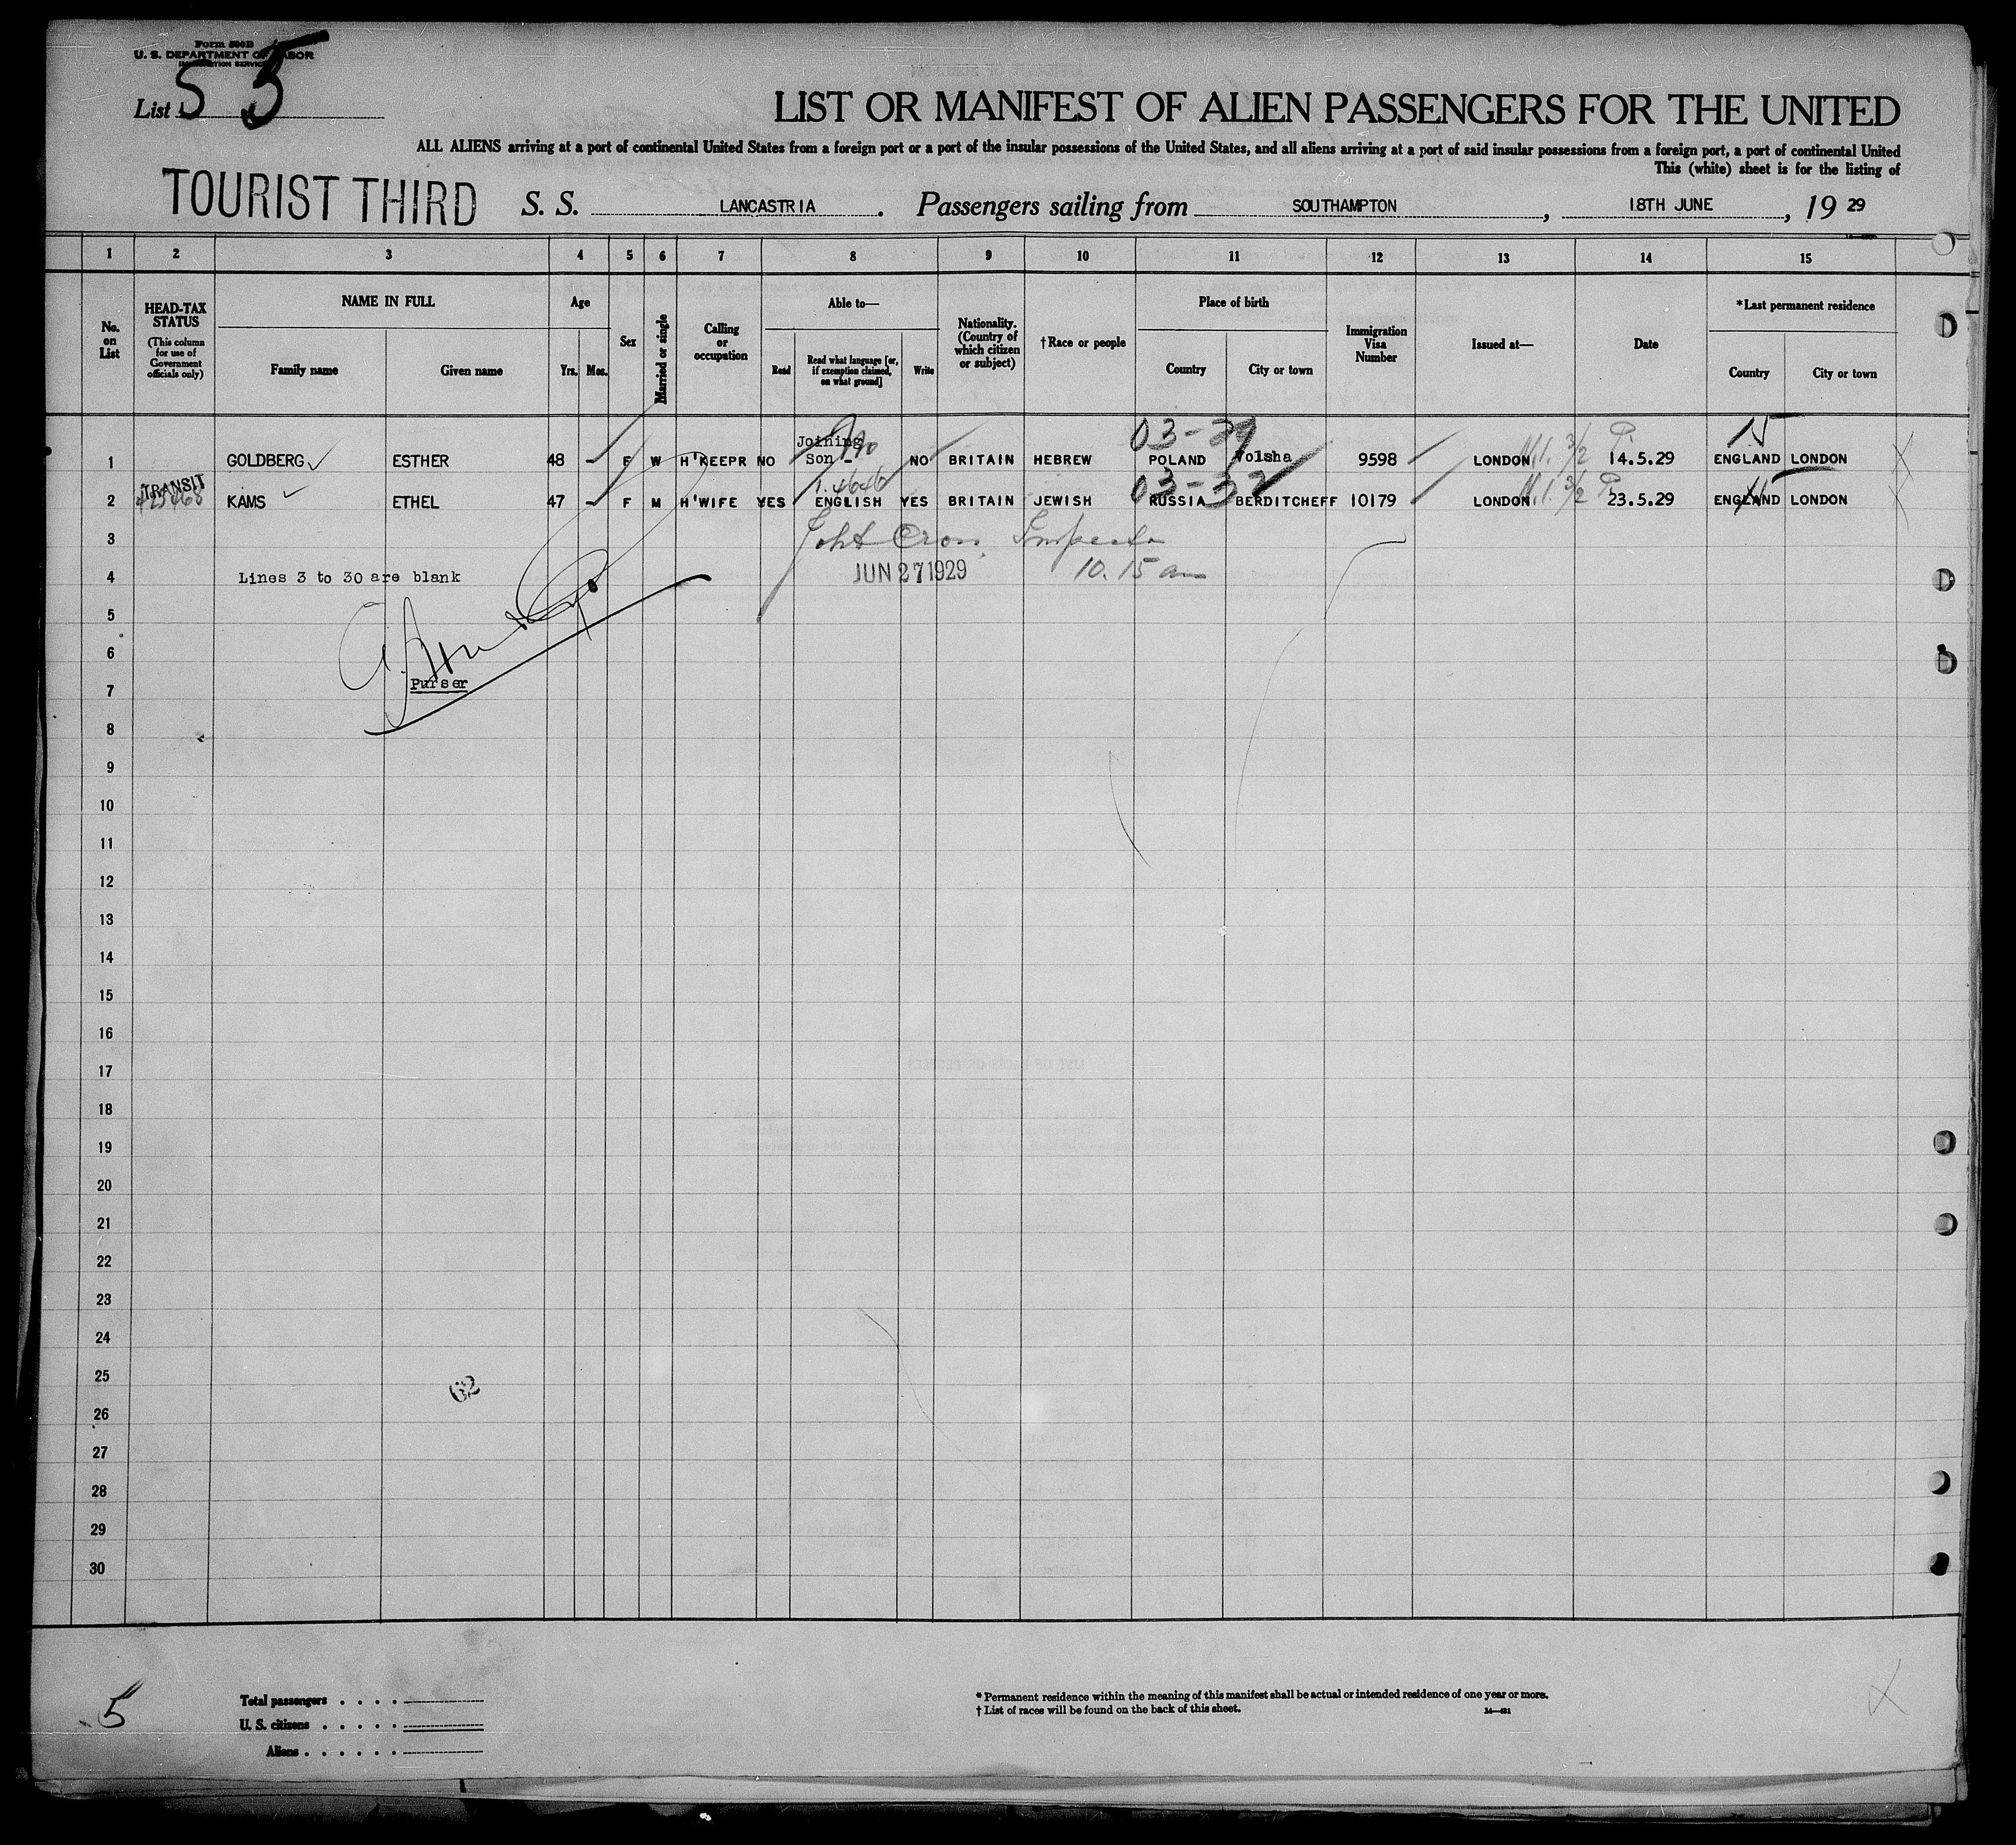 Form 500B
U. S. DEPARTMENT OF LABOR
IMMIGRATION SERVICE
List 5 5
LIST OR MANIFEST OF ALIEN PASSENGERS FOR THE UNITED
ALL ALIENS arriving at a port of continental United States from a foreign port or a port of the insular possessions of the United States, and all aliens arriving at a port of said insular possessions from a foreign port, a port of continental United
This (white) sheet is for the listing of
TOURIST THIRD S. S. LANCASTRIA. Passengers sailing from SOUTHAMPTON, 18TH JUNE, 19 29
1 2 3 4 5 6 7 8 9 10 11 12 13 14 15
No. on List
HEAD-TAX STATUS
(This column for use of Government officials only)
NAME IN FULL
Family name Given name
Age
Yrs. Mos.
Sex
Married or single
Calling or occupation
Able to—
Read
Read what language [or, if exemption claimed, on what ground]
Write
Nationality. (Country of which citizen or subject)
†Race or people
Place of birth
Country City or town
Immigration Visa Number
Issued at—
Date
*Last permanent residence
Country City or town
03-39 15
Joining
1 GOLDBERG ESTHER 48 - F W H'KEEPR NO Son - NO BRITAIN HEBREW POLAND Volsha 9598 LONDON 14.5.29 ENGLAND LONDON
TRANSIT 03-32
2 KAMS ETHEL 47 - F M H'WIFE YES ENGLISH YES BRITAIN JEWISH RUSSIA BERDITCHEFF 10179 LONDON 23.5.29 ENGLAND LONDON
3
4 Lines 3 to 30 are blank JUN 27 1929 10.15 am
5
6
7 Purser
8
9
10
11
12
13
14
15
16
17
18
19
20
21
22
23
24
25
62
26
27
28
29
30
5
Total passengers . . . .
U. S. citizens . . . . .
Aliens . . . . . .
* Permanent residence within the meaning of this manifest shall be actual or intended residence of one year or more.
† List of races will be found on the back of this sheet.